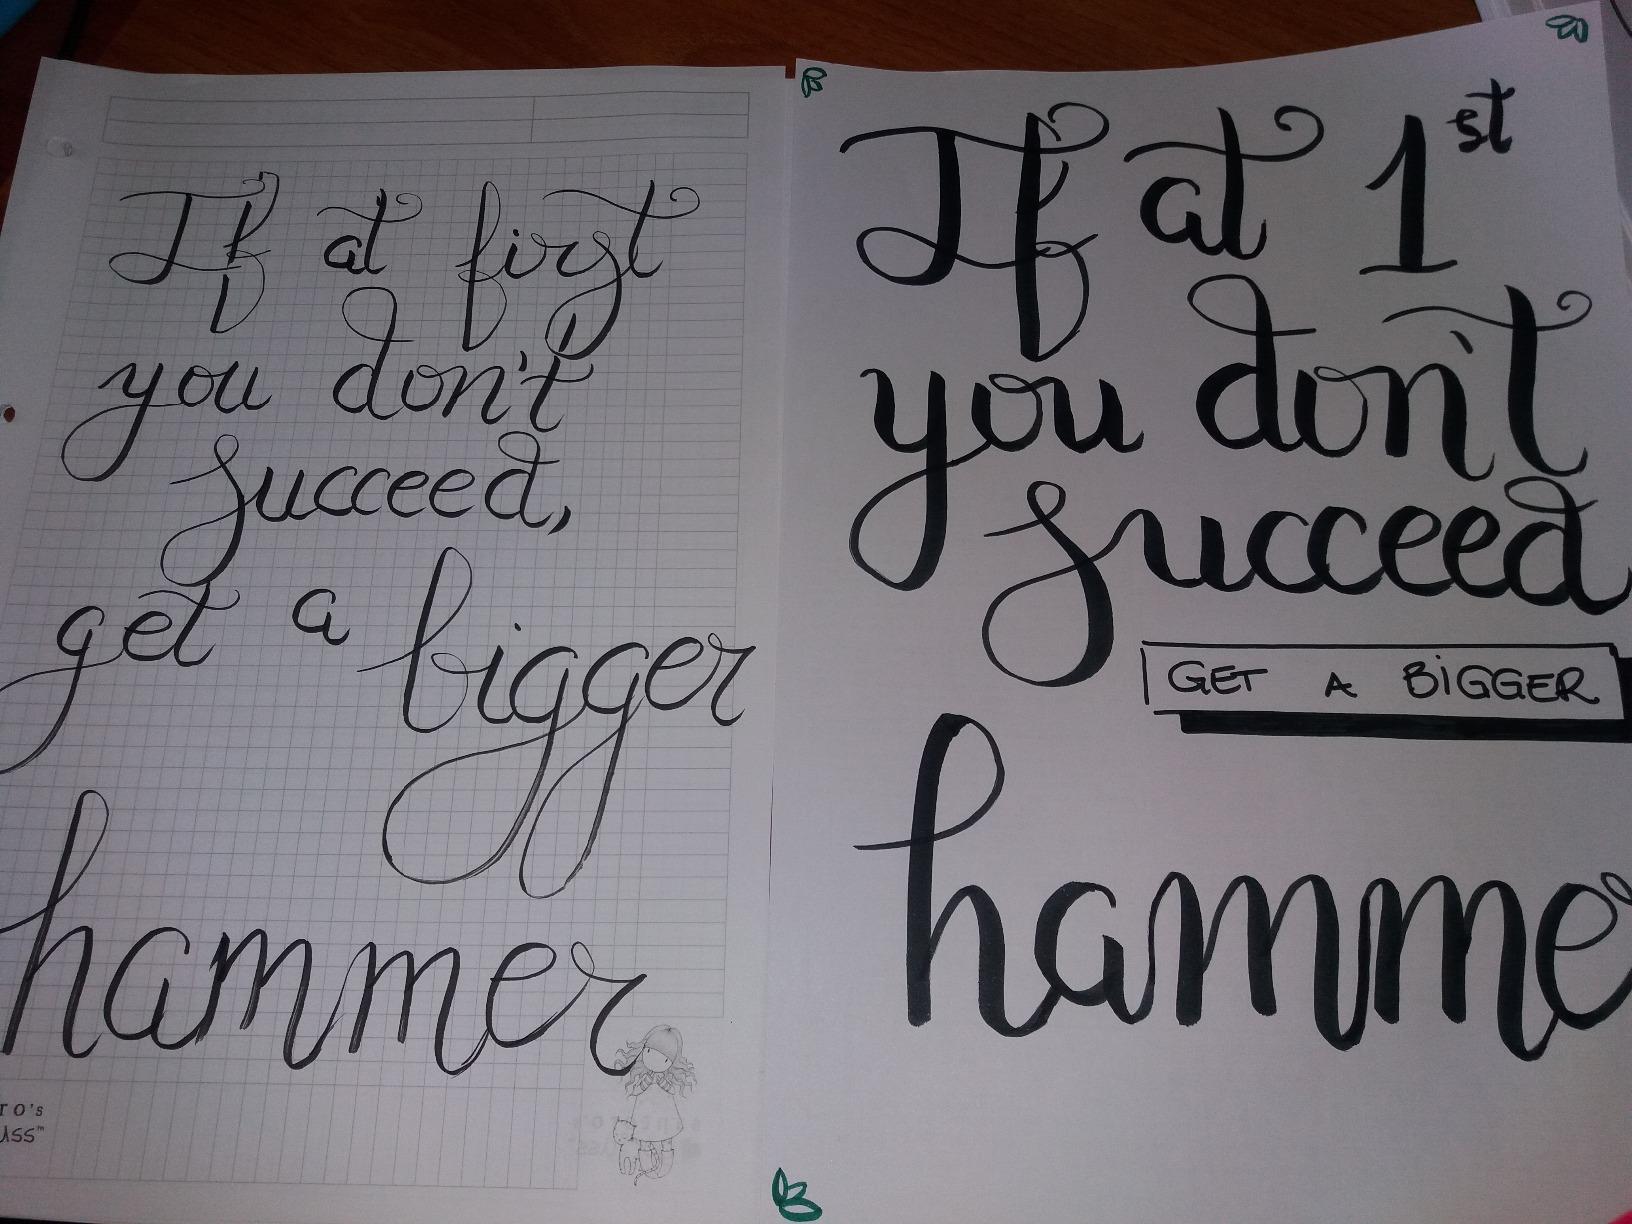 If at first
you don't
succeed,
get a bigger
hammer
If at 1st
you don't
succeed
GET A BIGGER
hamme